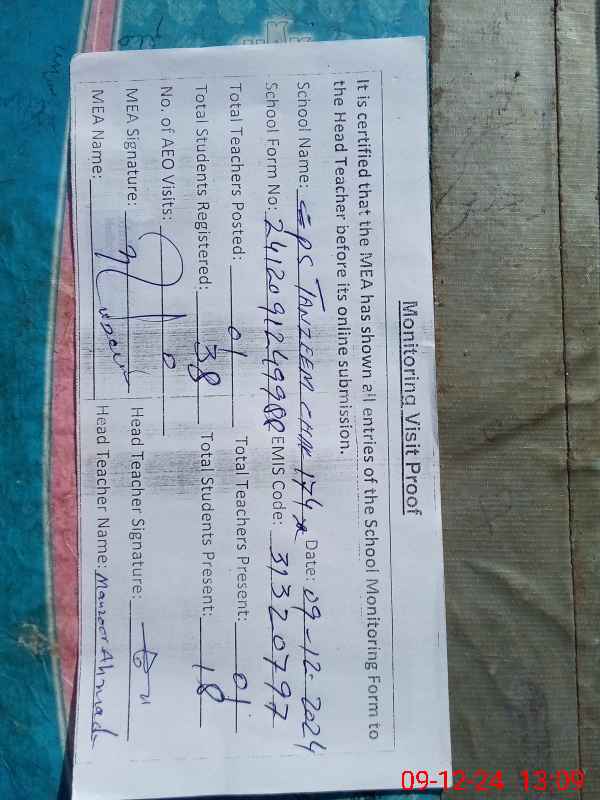 Monitoring Visit Proof
It is certified that the MEA has shown all entries of the School Monitoring Form to
the Head Teacher before its online submission.
School Name: GPS TANZEEM CHAK 174 Date: 09-12-2024
School Form No: EMIS Code: 31320797
Total Teachers Posted: 01 Total Teachers Present: 01
Total Students Registered: 38 Total Students Present: 18
No. of AEO Visits: 0
MEA Signature: Head Teacher Signature:
MEA Name: Head Teacher Name: Manzoor Ahmad
09-12-24 13:09